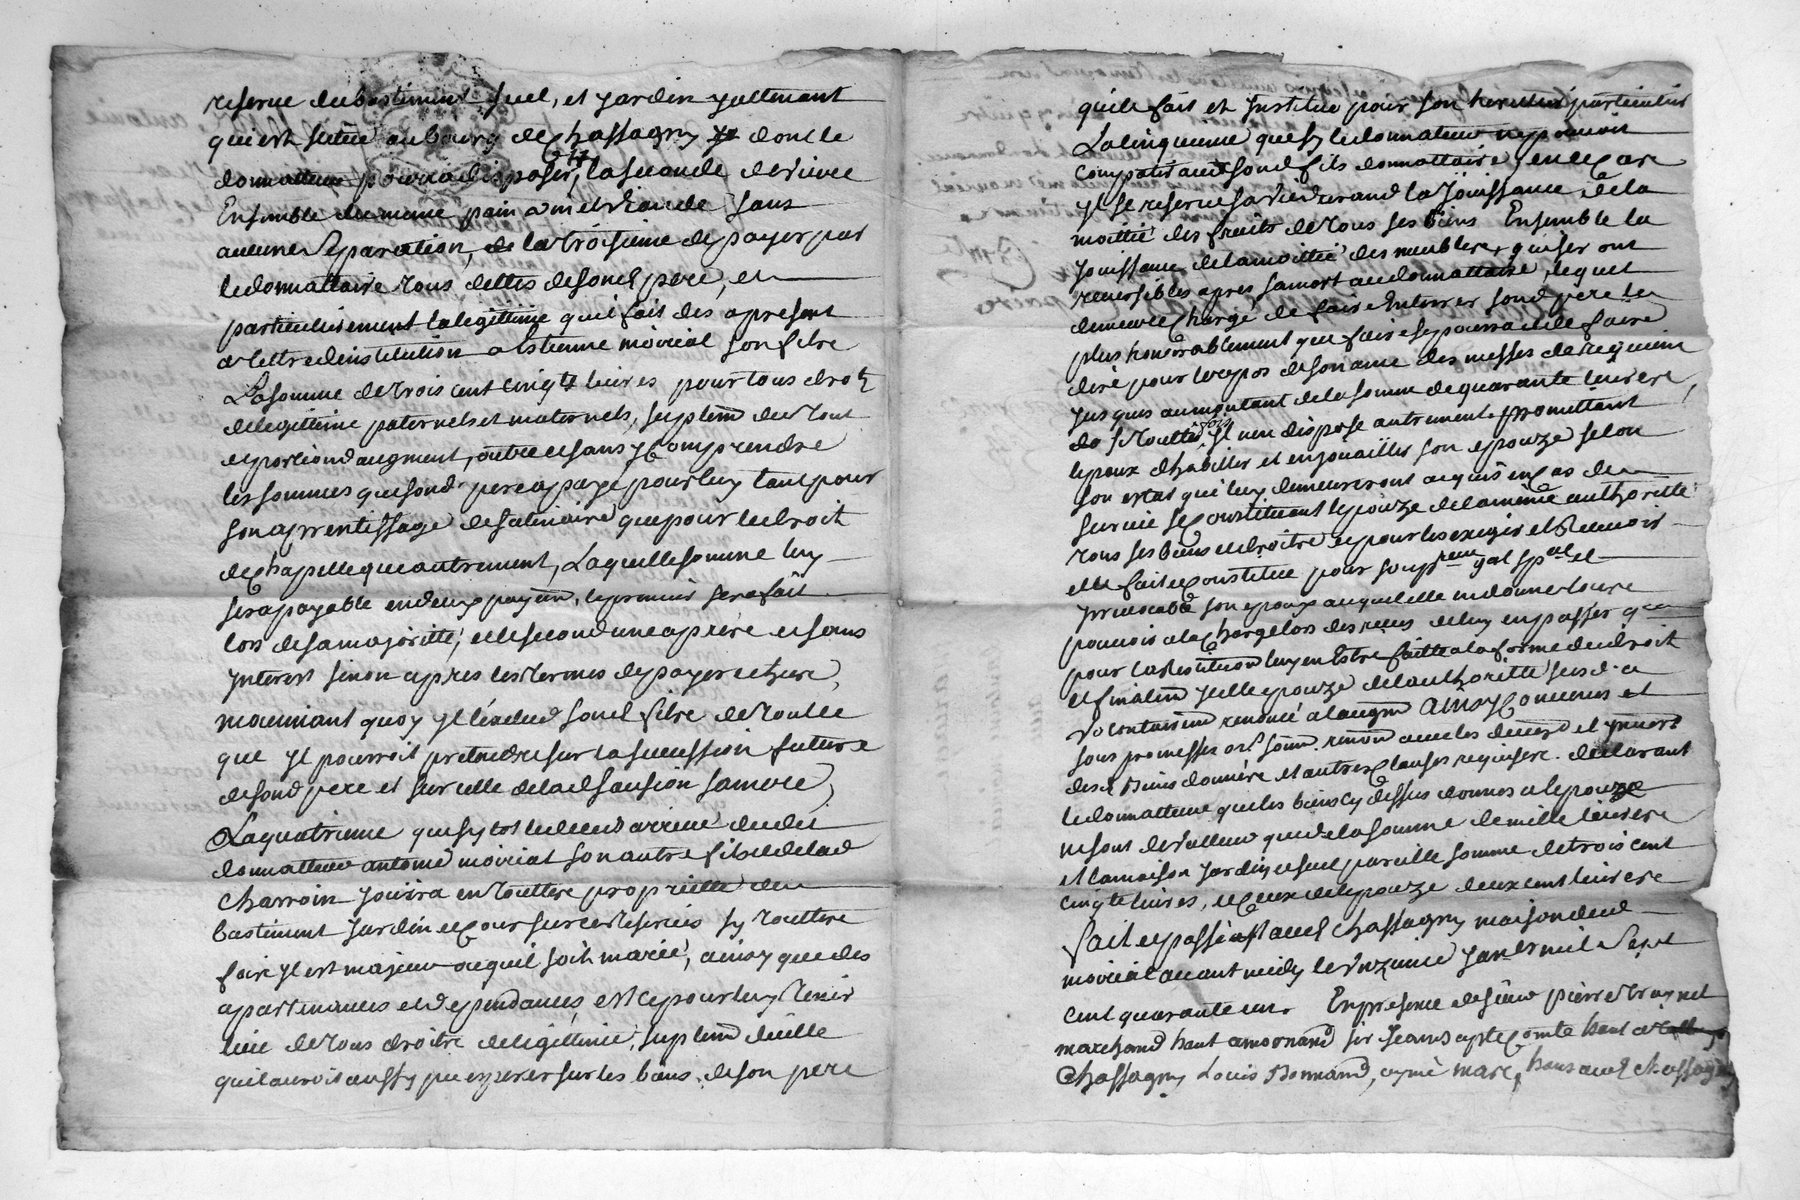 reserve du bastiment suel, et jardin y attenant
qui est scitue au bourg de Chassagny dont le
donnatteur pourra disposer, la seconde de vivre
Ensemble du mesme pain vin et viande sans
aucune separation, de la troisieme de payer par
le donnattaire tous dettes de sond pere, et
particulierement la legittime qu'il fait des apresent
a lettre dinstitution a Estienne moiriat son filz
La somme de trois cent cinqte livres pour tous droitz
de legittime paternels et maternels, suplem de tout
et portion daugment, outre et sans y Comprendre
les sommes que sond pere a paye pour luy tant pour
son aprentissage de que pour le droit
de Chapelle que autrement, Laquelle somme luy
sera payable en deux payem, le premier sera fait
lors de sa majoritté, et le second une apres et sans
Interest sinon apres les termes de payer echeu,
moyennant quoy Il lexclud sond filz de tout ce
que Il pourroit pretendre sur la succession future
de sond pere et sur celle de lad sausion sa mere,
La quatrieme que sytot le deces arrive dudit
donnatteur antoine moiriat son autre filz et de lad
charroin jouira en toutte proprietté du
bastiment jardin et cour sur ce reservés sy toutte
fois Il est majeur ou quil soit marié, ainsy que des
apartenances et dependances, et ce pour luy tenir
lieu de tous droitz de legittime, suplem dicelle
quil auroit aussy peu esperer sur les biens de son pere
qu'ils fait et Institue pour son heritier particulier
La cinquieme que sy le donnatteur ne pouvoit
compatir avec sond fils donnattaire, en ce Cas
Il se reserve sa vie durand la Jouissance de la
moittié des fruits de tous ses biens Ensemble la
jouissance de la moittié des meubles, qui ser ont
reversibles apres sa mort au donnattaire, lequel
demeure Charge de faire Enterrer sond pere le
plus honnorablement que faire se pourra et de faire
dire pour le repos de son ame des messes de requiem
jusques au montant de la somme de quarante livres
sy toutte fois Il nen dispose autrement promettant
lepoux dhabiller et enjouailler son epouze selon
son estat qui luy demeureront acquis en Cas de
survie se Constituant lepouze de la meme authoritté
tous ses biens et droitz et pour les exiger et recevoir
elle fait et Constitue pour son pr gal spal et
Irrevocable son epoux auquel elle en donne toute
pouvois a la Charge lors des receus de luy en passer qce
pour la restitution luy en Estre faitte a la forme du droit
et finalem ycelle epouze de lauthoritté susd a
volontairem renoncé a laugm ainsy Convenus et
sous promesses
des biens donnés et autres Clauses requises. declarant
le donnatteur que les biens Cy dessus donnes a lepouze
ne sont de valleur que de la somme de mille livres
et la maison jardin et suel pareille somme de trois cent
cinqte livres, et Ceux de lepouze deux cent livres
fait et passé aud Chassagny maison dud
moiriat avant midy le unzieme janvr mil sept
cent quarante un. En presence de sieur pierre traynel
marchand hant a mornand sir Jean baptte Comte hant a
Chassagny Louis Bonnand, aymé mare, hans aud chassagny